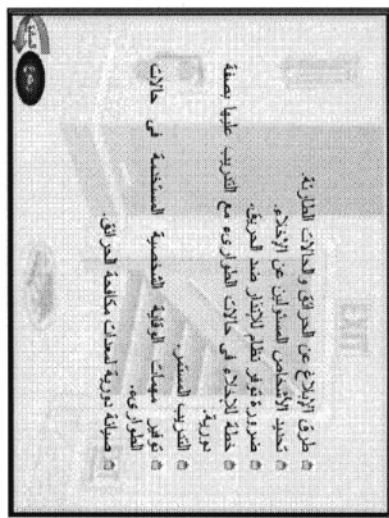 طرق الإبلاغ عن الحرائق والحالات الطارئة.
تحديد الأشخاص المسئولين عن الإخلاء.
ضرورة توفر نظام للإنذار ضد الحريق.
خطة للإخلاء فى حالات الطوارىء مع التدريب عليها بصفة
دورية.
التدريب المستمر.
توفير مهمات الوقاية الشخصية المستخدمة فى حالات
الطوارىء.
صيانة دورية لمعدات مكافحة الحرائق.
EXIT